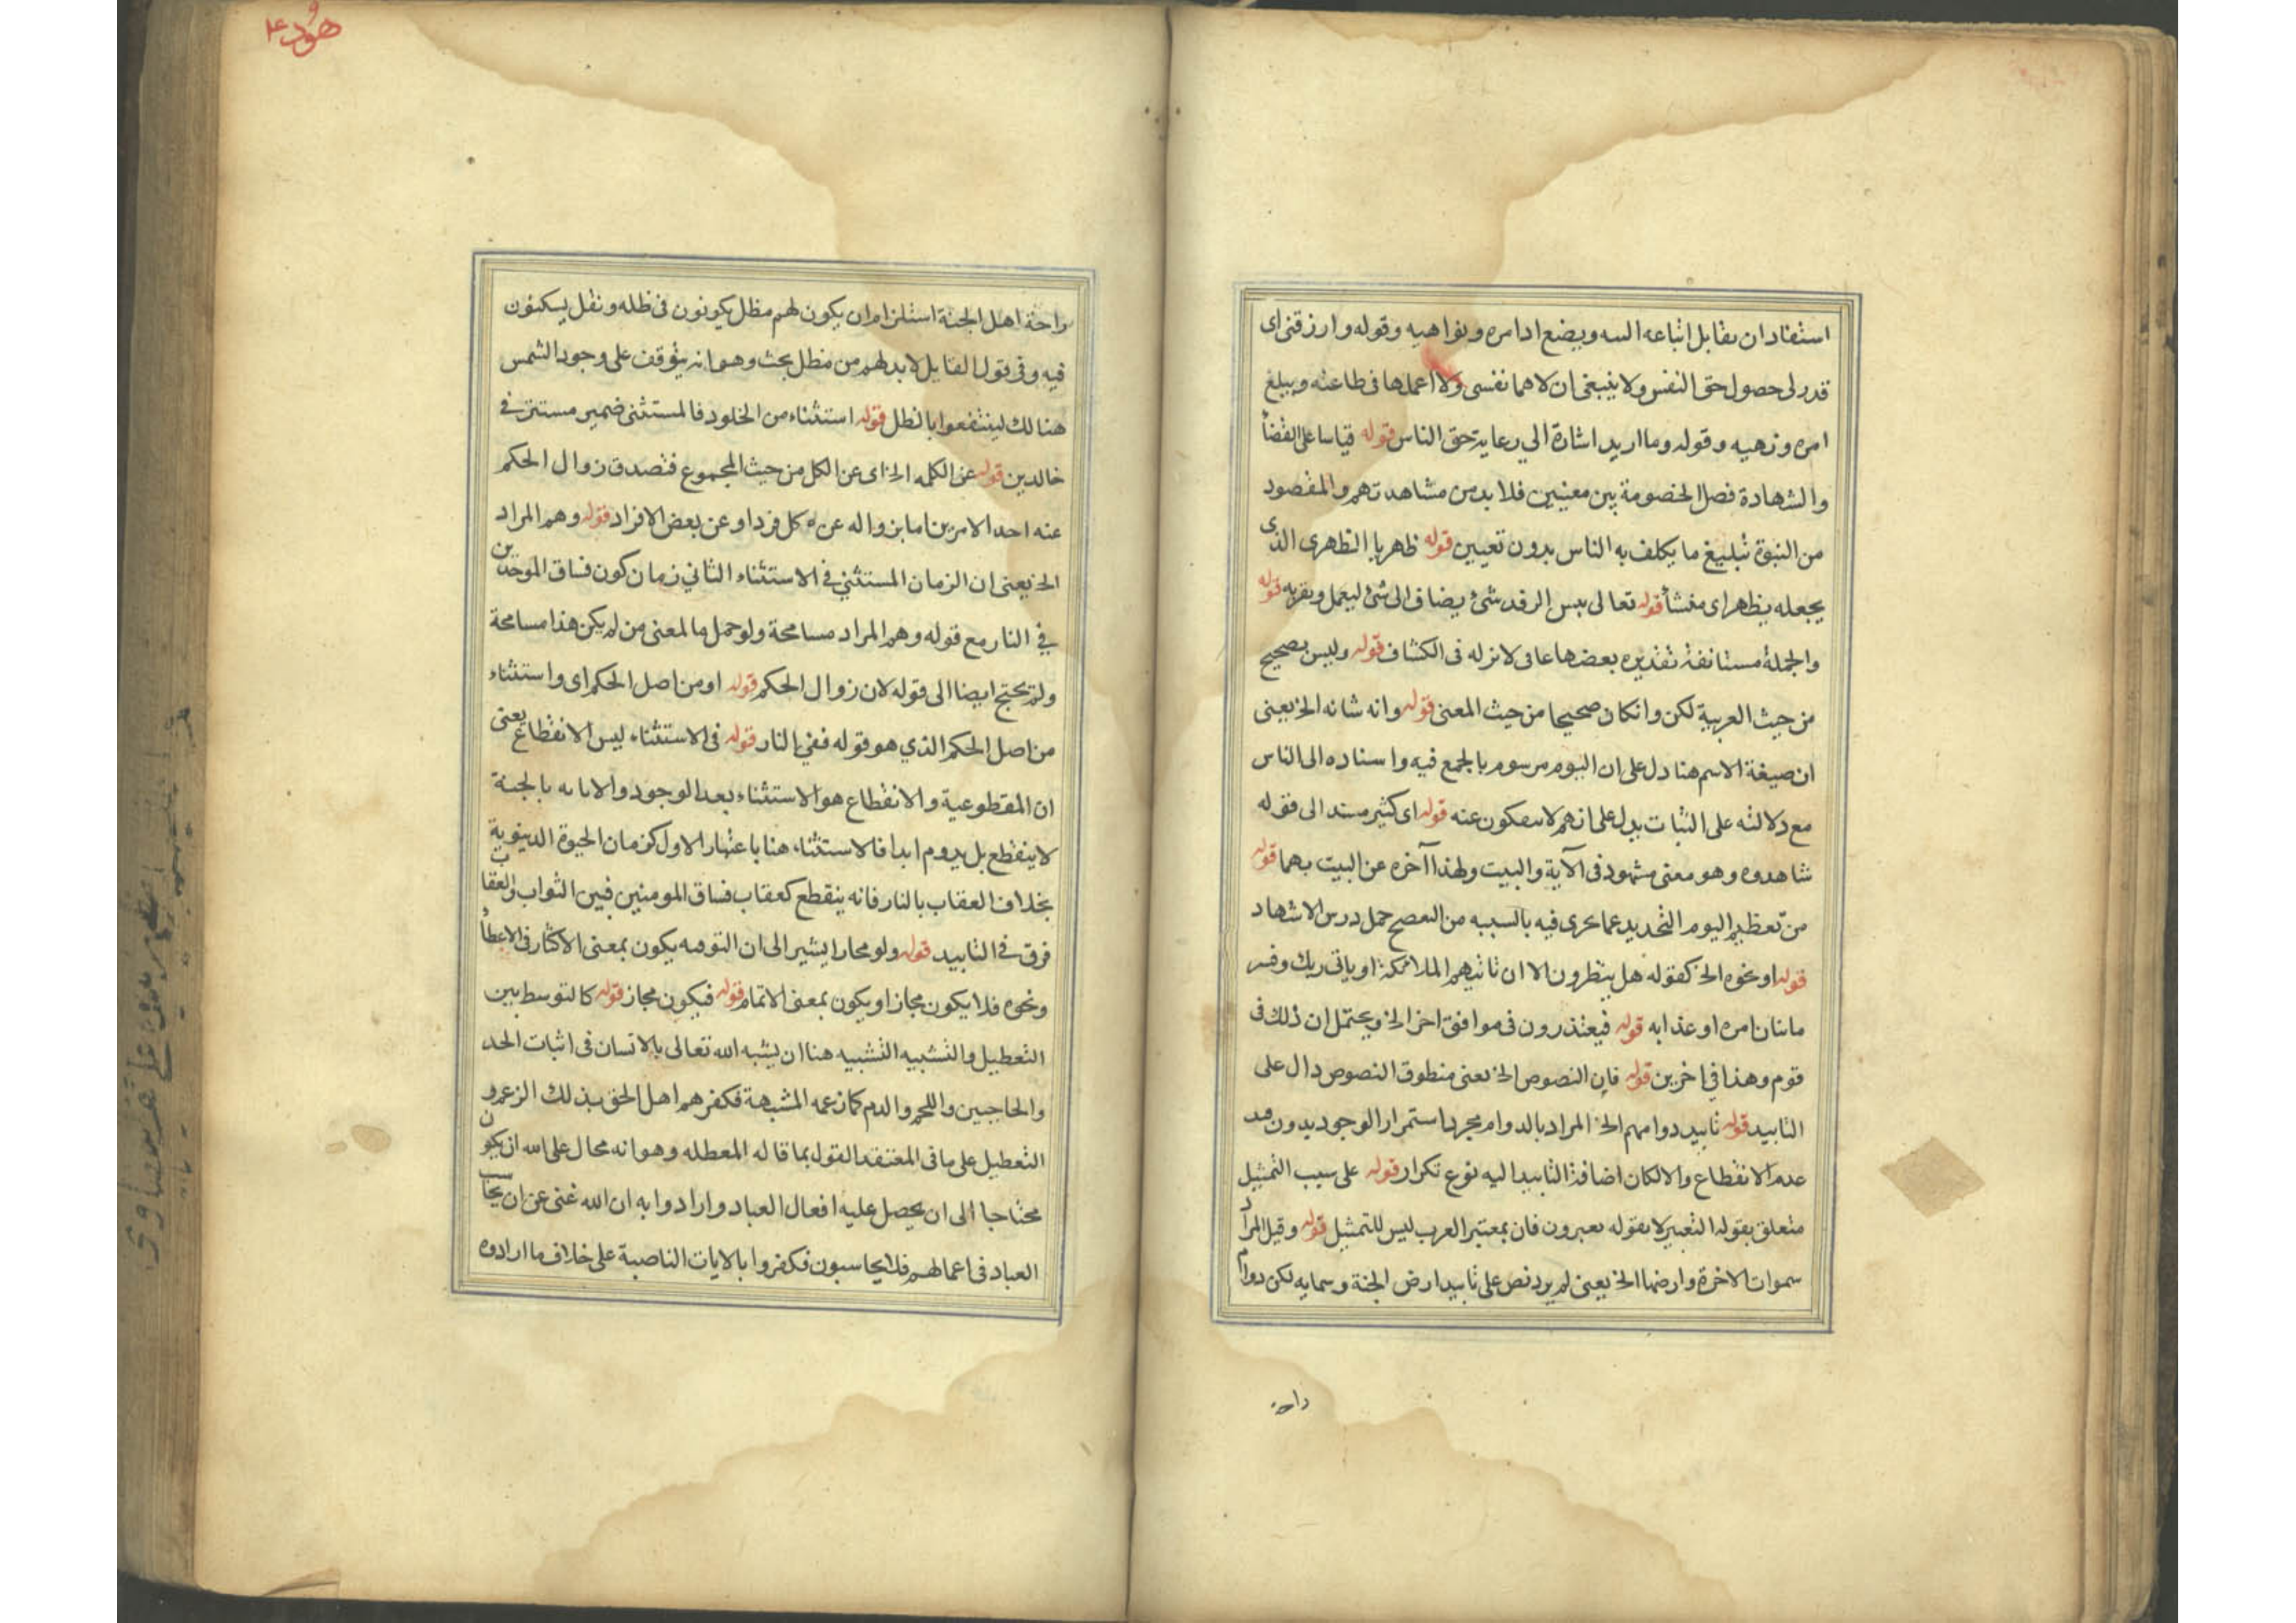 استفاد ان يقابل اتباعه السه ويضع ادامره ونواهيه وقوله وارزقنى اى
قدر لى حصول حق النفس ولا ينبغى ان لاهما نفسى ولا اعملها فى طاعته ويبلغ
امره ونهيه وقوله وما اريد اشارة الي رعاية حق الناس قوله قياسا على القضأ
والشهادة فصل الخصومة بين معينين فلا بد من مشاهدتهم والمقصود
من النبوة تبليغ ما يكلف به الناس بدون تعيين قوله ظهريا الظهرى الذى
يجعله بظهر اى منشأ قوله تعالى بيس الرفد شئ يضاف الى شئ ليعمل ويقربه قوله
والجملة مستانفة تقديره بعضها عافى لانزله فى الكشاف قوله وليس بصحيح
من حيث العربية لكن وانكان صحيحا من حيث المعنى قوله وانه شانه الخ يعنى
ان صيغة الاسم هنا دل على ان اليوم مرسوم بالجمع فيه واسناده الى الناس
مع دلالته على الثبات يدل على انهم لاينفكون عنه قوله اى كثير مسند الى فقوله
شاهدوه وهو معنى مشهود فى الآية والبيت ولهذا آخره عن البيت بهما قوله
من تعظيم اليوم التحديد عما عرى فيه بالسببه من حمل درس الاشهاد
قوله او نحوه الخ كقوله هل ينظرون الا ان تاتيهم الملائكة او ياتى ربك وفسر
ماتيان امره او عذابه قوله فيعتذرون فى موافق اخر الخ ويحتمل ان ذلك فى
قوم وهذا في اخرين قوله فان النصوص الخ يعنى منطوق النصوص دال على
التابيد قوله تابيد دوامهم الخ المراد بالدوام مجرد استمرار الوجود بدون قيد
عدم الانقطاع والالكان اضافة التابيد اليه نوع تكرار قوله على سبب التمثيل
متعلق بقوله التعبير لا بقوله يعبرون فان بمعتبر العرب ليس للتمثيل قوله وقيل المراد
سموات الاخرة وارضها الخ يعنى لم يرد نص على تابيد ارض الجنة وسمايه لكن دوام
راحة
هود ع
راحة اهل الجنة استلزام ان يكون لهم مظل يكونون فى ظله ونقل يسكنون
فيه وفى قول القايل لابد لهم من مظل بحث وهو انه يتوقف على وجود الشمس
هنالك لينتفعوا بالظل قوله استثناء من الخلود فالمستثنى ضمير مستتر في
خالدين قوله عن الكلمه الخ اى عن الكل من حيث المجموع فتصدق زوال الحكم
عنه احد الامرين اما بزواله عن كل فرد او عن بعض الافراد قوله وهم المراد
الخ يعنى ان الزمان المستثني في الاستثناء الثاني زمان كون فساق الموحدين
في النار مع قوله وهم المراد مسامحة ولو حمل ما لمعنى من لم يكن هذا مسامحة
ولم يحتج ايضا الى قوله لان زوال الحكم قوله او من اصل الحكم اى واستثناء
من اصل الحكم الذي هو قوله ففي النار قوله فى الاستثناء ليس الانقطاع يعنى
ان المقطوعية والانقطاع هو الاستثناء بعد الوجود والاثابه بالجنة
لا ينقطع بل يدوم ابدا فالاستثناء هنا باعتبار الاول كزمان الحيوة الدينوية
بخلاف العقاب بالنار فانه ينقطع كعقاب فساق المومنين فبين الثواب والعقاب
فرق في التابيد قوله ولو محارا يشير الى ان التوفيه يكون بمعنى الاكثار فى الاعطأ
ونحوه فلا يكون مجازا ويكون بمعنى الاتمام قوله فيكون مجاز قوله كالتوسط بين
التعطيل والتشبيه التشبيه هنا ان يشبه الله تعالى بالانسان فى اثبات الحد
والحاجبين واللحم والدم كما زعمه المشبهة فكفرهم اهل الحق بذلك الزعم و
التعطيل على مافى المعتقد القول بما قاله المعطله وهو انه محال على الله ان يكون
محتاجا الى ان يحصل عليه افعال العباد وارادوا به ان الله غنى عن ان يحاسب
العباد فى اعمالهم فلا يحاسبون فكفروا بالايات الناصبة على خلاف ما ارادوه